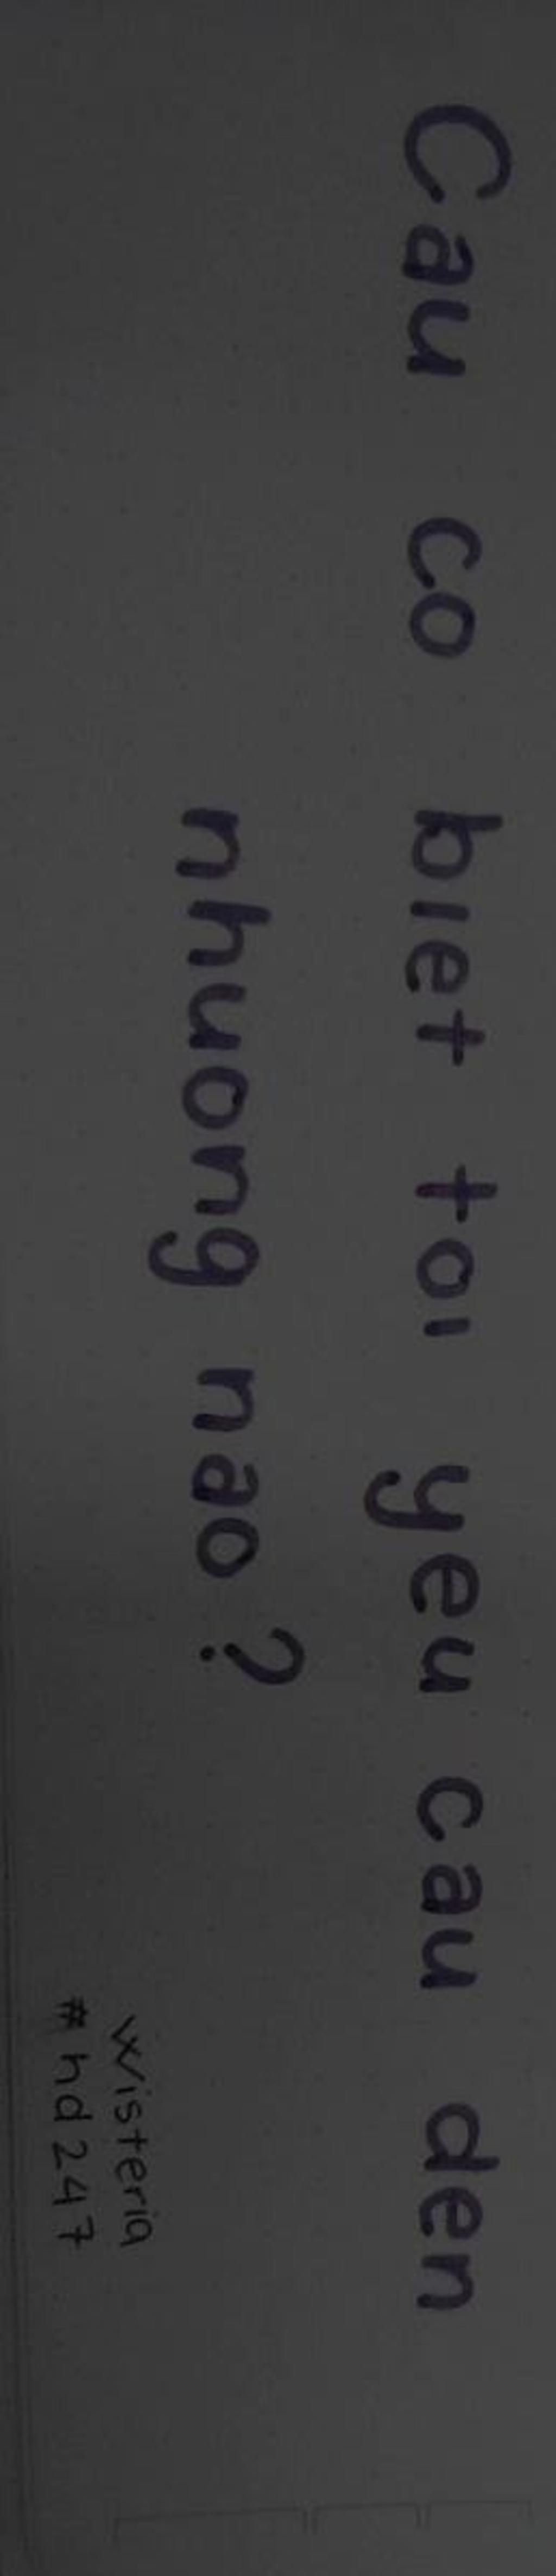 Cau co biet toi yeu cau den
nhuong nao?
Wisteria
#hd247